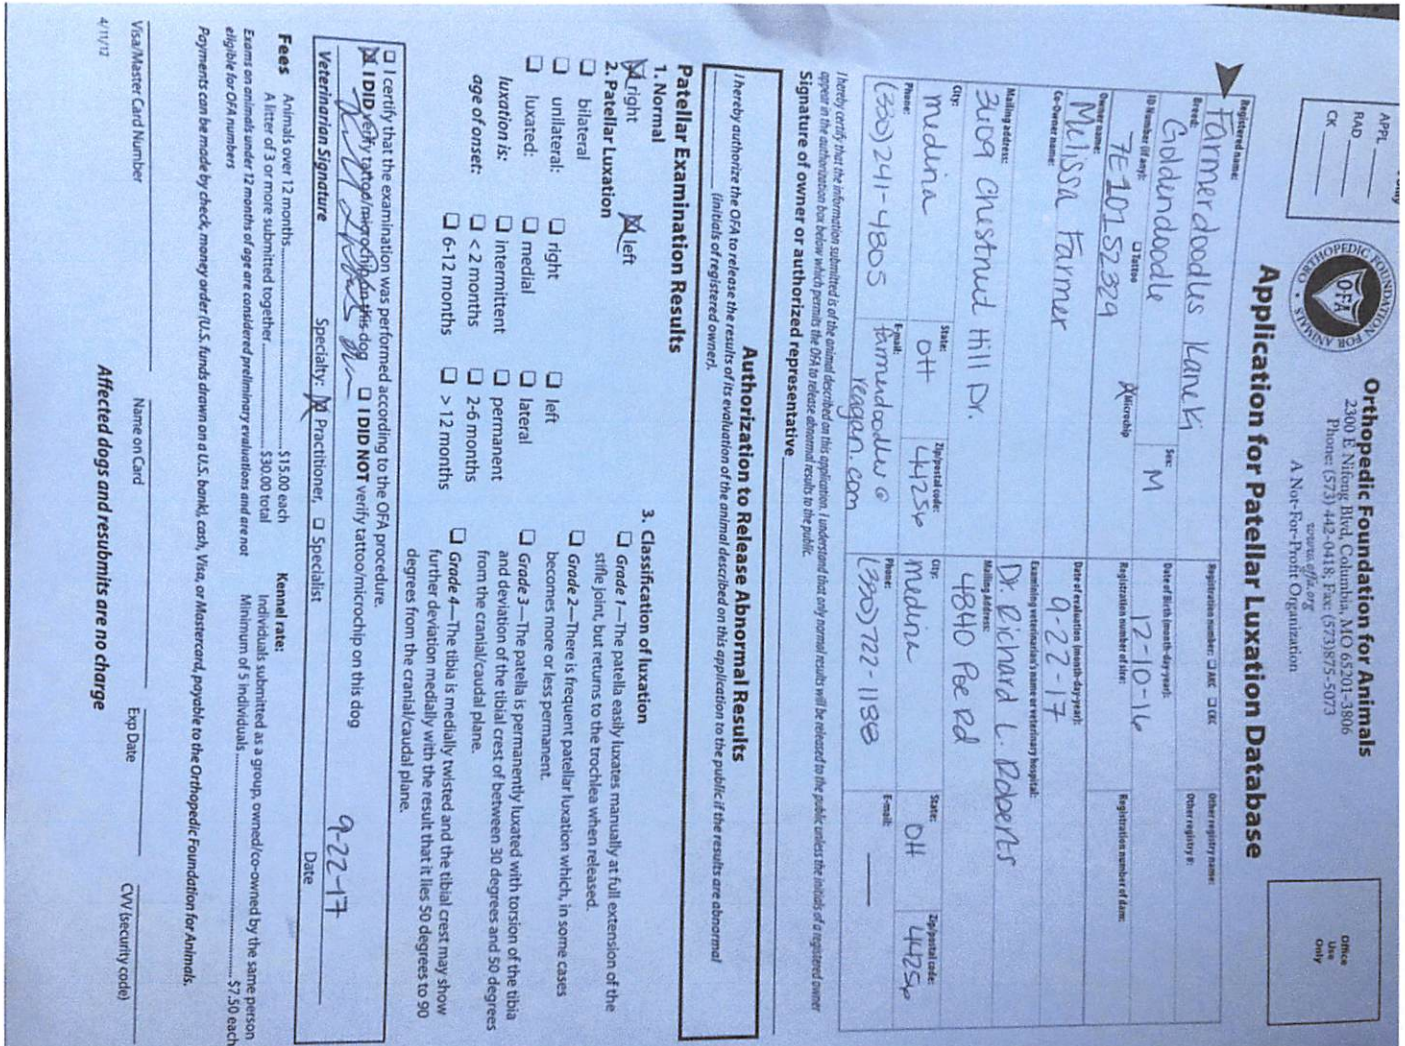 only
APPL
RAD
CK
ORTHOPEDIC FOUNDATION FOR ANIMALS
OFA
Orthopedic Foundation for Animals
2300 E Nifong Blvd, Columbia, MO 65201-3806
Phone: (573) 442-0418; Fax: (573)875-5073
www.offa.org
A Not-For-Profit Organization
Office
Use
Only
Application for Patellar Luxation Database
Registered name:
Farmerdoodles Kaneki
Registration number: ☐ AKC ☐ CKC
Other registry name:
Other registry #:
Breed:
Goldendoodle
Sex:
M
Date of Birth (month-day-year):
12-10-16
ID Number (if any):
☐ Tattoo
☒ Microchip
7E10152329
Registration number of sire:
Registration number of dam:
Owner name:
Melissa Farmer
Date of evaluation (month-day-year):
9-22-17
Co-Owner name:
Examining veterinarian's name or veterinary hospital:
Dr. Richard L. Roberts
Mailing address:
3609 Chestnut Hill Dr.
Mailing Address:
4840 Poe Rd
City:
medina
State:
OH
Zip/postal code:
44256
City:
medina
State:
OH
Zip/postal code:
44256
Phone:
(330) 241-4805
E-mail:
farmerdoodles@
reagan.com
Phone:
(330) 722-1188
E-mail:
I hereby certify that the information submitted is of the animal described on this application. I understand that only normal results will be released to the public unless the initials of a registered owner
appear in the authorization box below which permits the OFA to release abnormal results to the public.
Signature of owner or authorized representative
Authorization to Release Abnormal Results
I hereby authorize the OFA to release the results of its evaluation of the animal described on this application to the public if the results are abnormal
(initials of registered owner).
Patellar Examination Results
1. Normal
☒ right ☒ left
2. Patellar Luxation
☐ bilateral
☐ unilateral: ☐ right ☐ left
☐ luxated: ☐ medial ☐ lateral
luxation is: ☐ intermittent ☐ permanent
age of onset: ☐ < 2 months ☐ 2-6 months
☐ 6-12 months ☐ > 12 months
3. Classification of luxation
☐ Grade 1—The patella easily luxates manually at full extension of the
stifle joint, but returns to the trochlea when released.
☐ Grade 2—There is frequent patellar luxation which, in some cases
becomes more or less permanent.
☐ Grade 3—The patella is permanently luxated with torsion of the tibia
and deviation of the tibial crest of between 30 degrees and 50 degrees
from the cranial/caudal plane.
☐ Grade 4—The tibia is medially twisted and the tibial crest may show
further deviation medially with the result that it lies 50 degrees to 90
degrees from the cranial/caudal plane.
☐ I certify that the examination was performed according to the OFA procedure.
☒ I DID verify tattoo/microchip on this dog ☐ I DID NOT verify tattoo/microchip on this dog
9-22-17
Veterinarian Signature Specialty: ☒ Practitioner, ☐ Specialist Date
Fees Animals over 12 months $15.00 each
A litter of 3 or more submitted together $30.00 total
Exams on animals under 12 months of age are considered preliminary evaluations and are not
eligible for OFA numbers
Kennel rate: Individuals submitted as a group, owned/co-owned by the same person
Minimum of 5 individuals $7.50 each
Payments can be made by check, money order (U.S. funds drawn on a U.S. bank), cash, Visa, or Mastercard, payable to the Orthopedic Foundation for Animals.
Visa/Master Card Number Name on Card Exp Date CVV (security code)
4/11/12
Affected dogs and resubmits are no charge